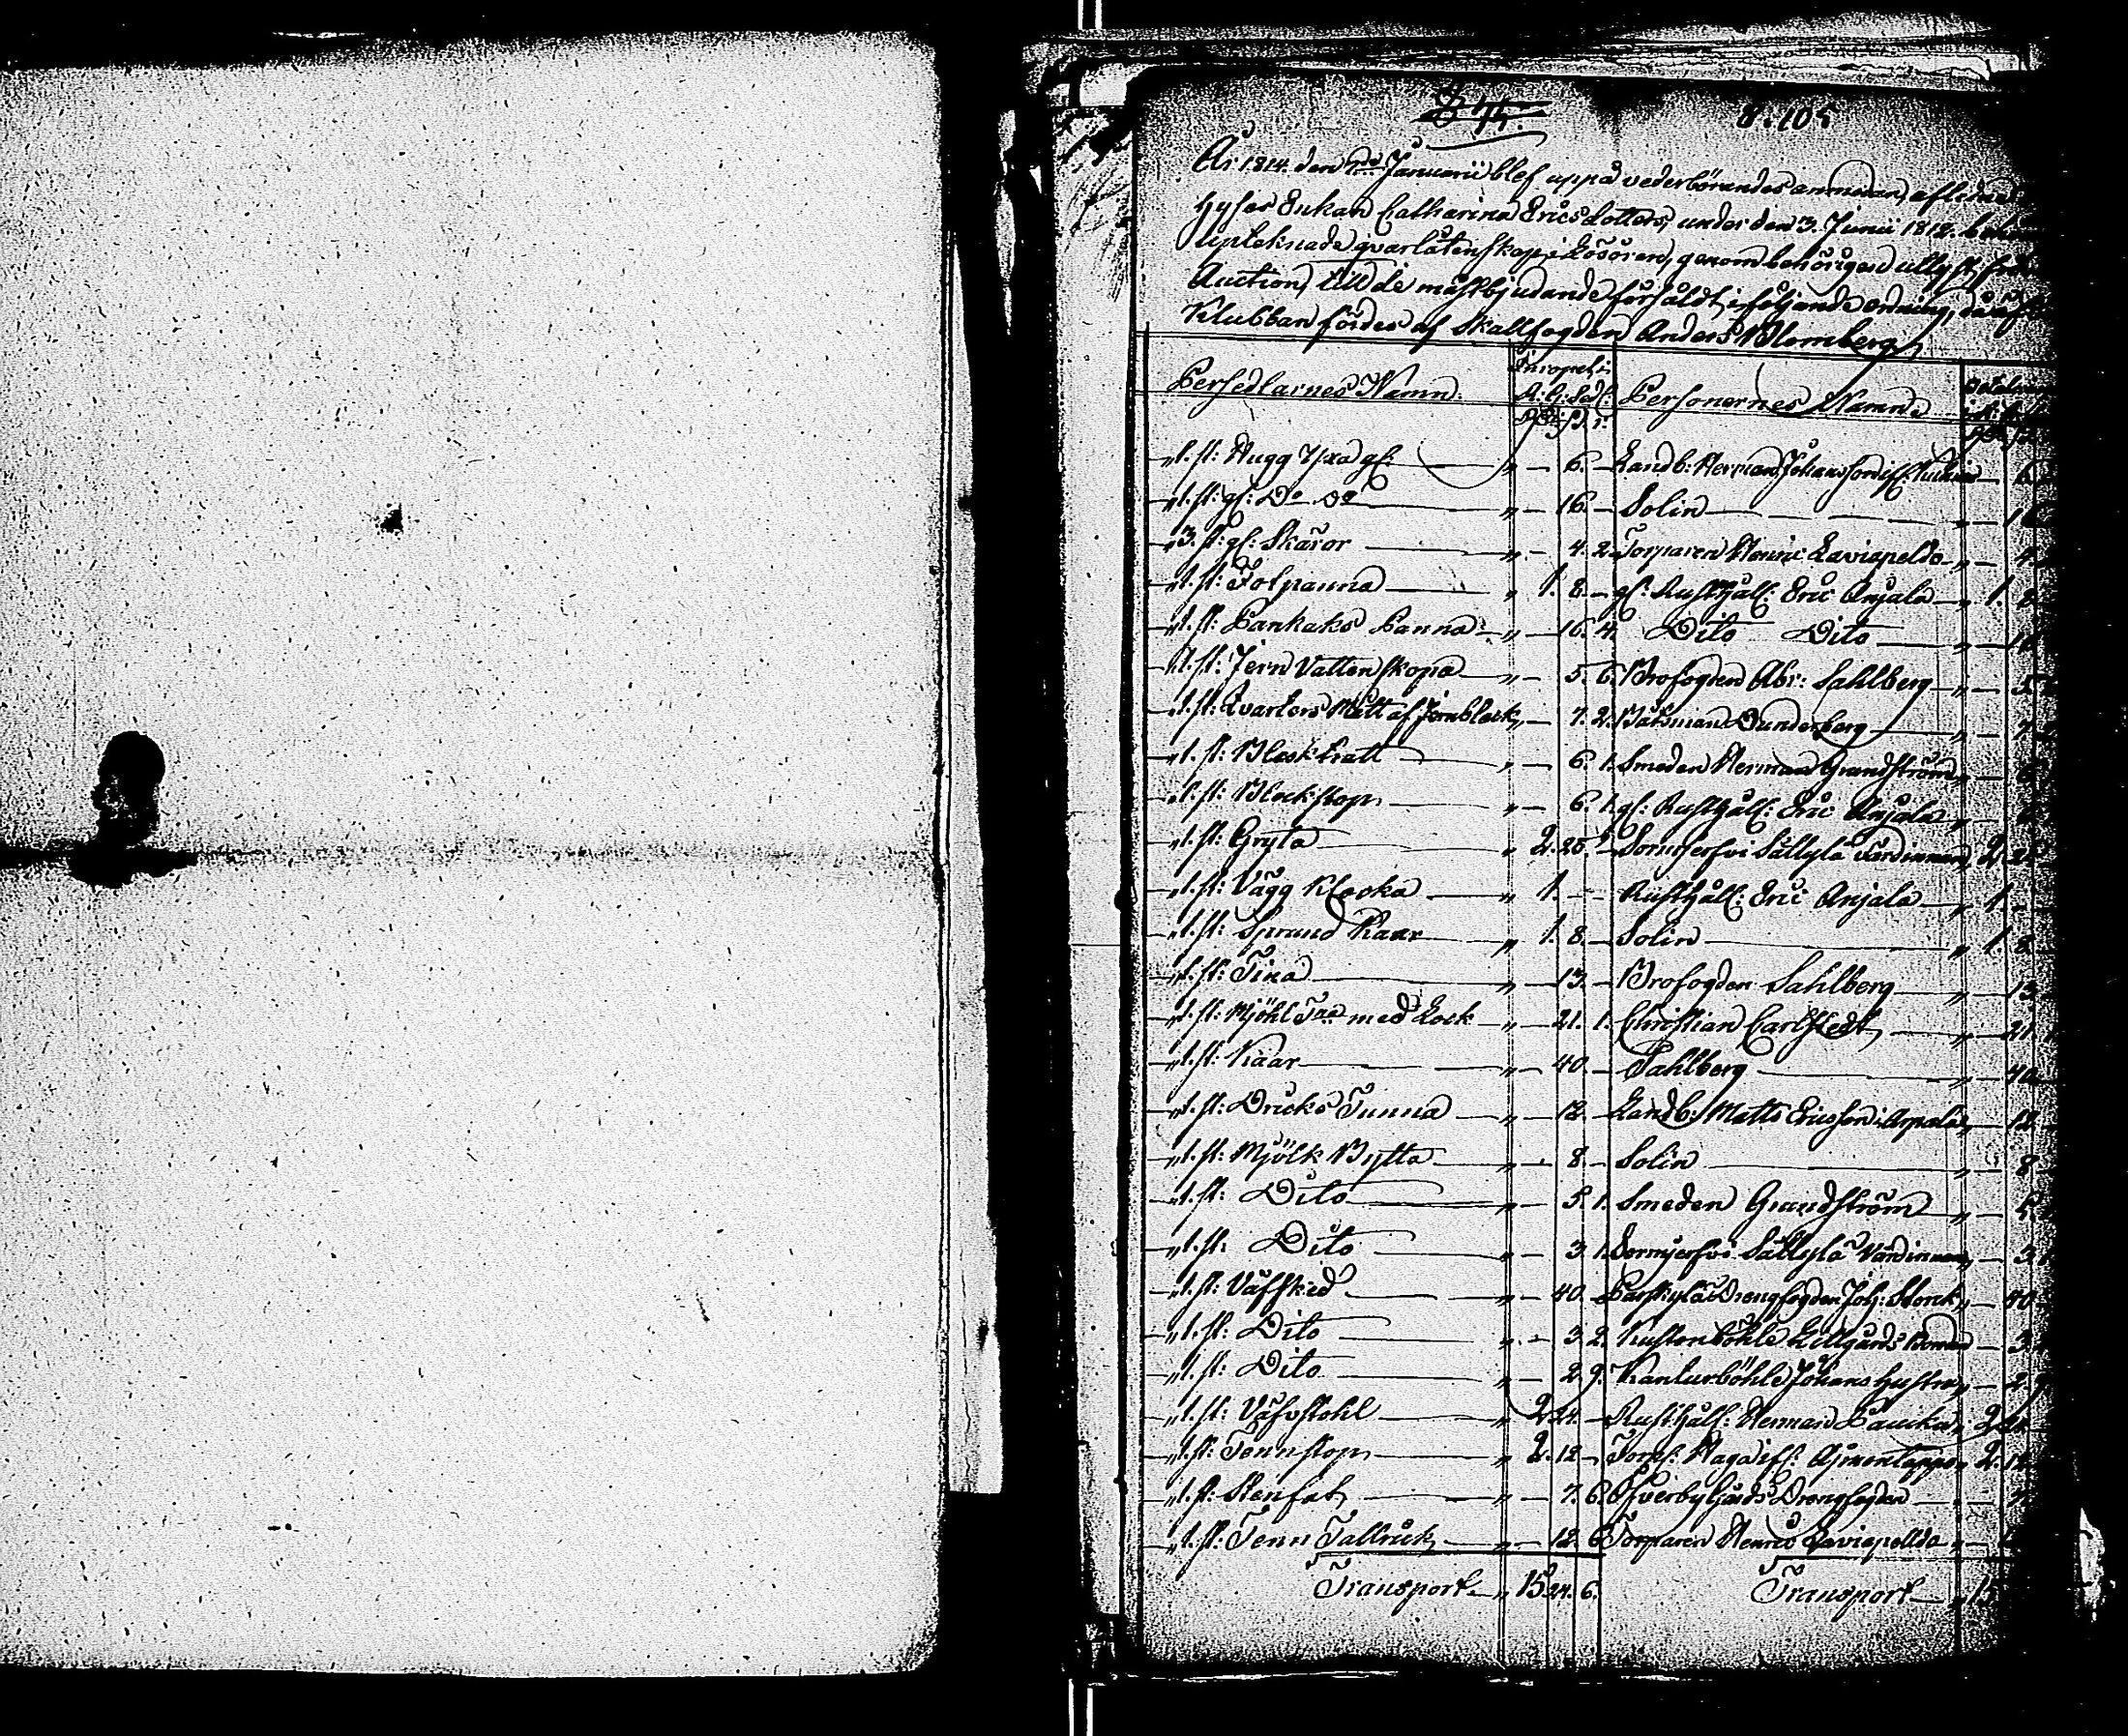 8.105
År 1814. den 7de Januarii blef uppå vederbörandes anmodan, afledne
Hyses Enkan Catharina Ericsdotters, under den 3. Junii 1812.
Upteknade qvarlåtenskap i Lösören, genom behörigen utlyst
Auction, till de mästbjudande försåldt i följande ordning, då
Klubban fördes af Skallfogden Anders Blomberg
Persedlarnes Namn. Inropet i R: G: Sedl: Personernes Namn.
1. st: Hugg Yxa gl: 6. Landb: Herman Johansson
1. st: gl: Do Do 16. Solin
3. st: gl: Skäror 4. 2. Torparen Henric Laviapeldo 4.
1. st: Fotpanna 1. 8. gl: Rusthåll: Eric Anjala 1. 8
1. st: Pankaks Panna 16. 4. Dito Dito
1. st: Jern Vatten skopa 5. 6. Brofogden Abr: Sahlberg 5
1. st: Qvarters Mått af Jernbleck 7. 2. Båtsman Dunderberg 7
1. st: Bleck tratt 6. 1. Smeden Herman Grandström 6
1. st: Bleckstop 6. 1. gl: Rusthåll: Eric Anjala
1. st: Gryta 2. 25. Sormjerfvi Sällylä Värdinnan 2. 25
1. st: Vägg Klocka 1. Rusthåll: Eric Anjala 1
1. st: Sprund Kaar 1. 8. Solin 1. 8
1. st: Tina 13. Brofogden Sahlberg 13
1. st: Mjöhl med Lock 21. 1. Christian Carlstedt 21
1. st: Kaar 40. Sahlberg 40
1. st: Dricks Tunna 12. Landb: Matts Ericsson i Arpala 12
1. st: Mjölk Bytta 8. Solin 8
1. st: Dito 5. 1. Smeden Grandström 5
1. st: Dito 3. 1. Sormjerfvi Sällylä Värdinnan 3
1. st: Väfsked 40. Drengfogden Joh: Storck 40
1. st: Dito 3. 2. 3
1. st: Dito 2. 9. Kanturböhle Johans hustru 2. 9
1. st: Väfvstohl 2. 24. Rusthåll: Herman Paucka 2. 24
1. st: Tennstop 2. 12. 2. 12
1. st: Stenfat 7. 6. Öfverby Gårds Drengfogden 7
1. st: Tenn Tallrick 12. 6. Torparen Henric Laviapeldo
Transport 15. 24. 6. Transport 15